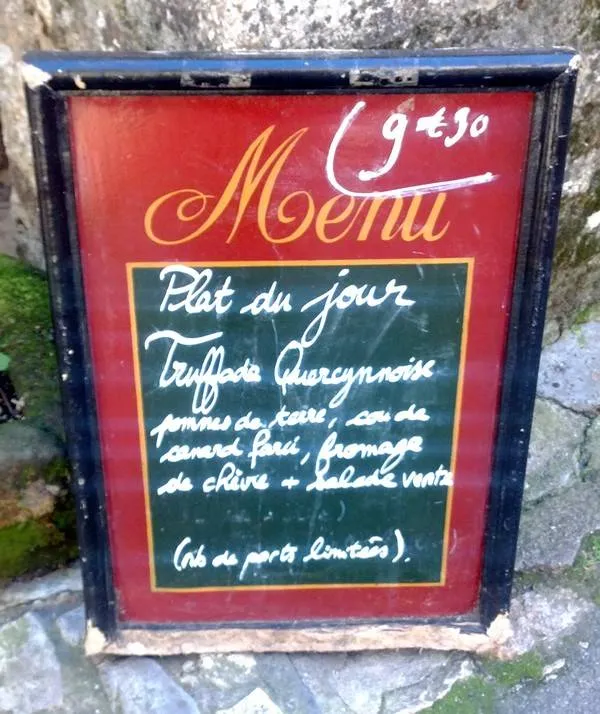 9€30
Menu
Plat du jour
Truffade Quercynnoise
pommes de terre, cou de
canard farci, fromage
de chèvre + Salade verte
(nb de parts limitées).